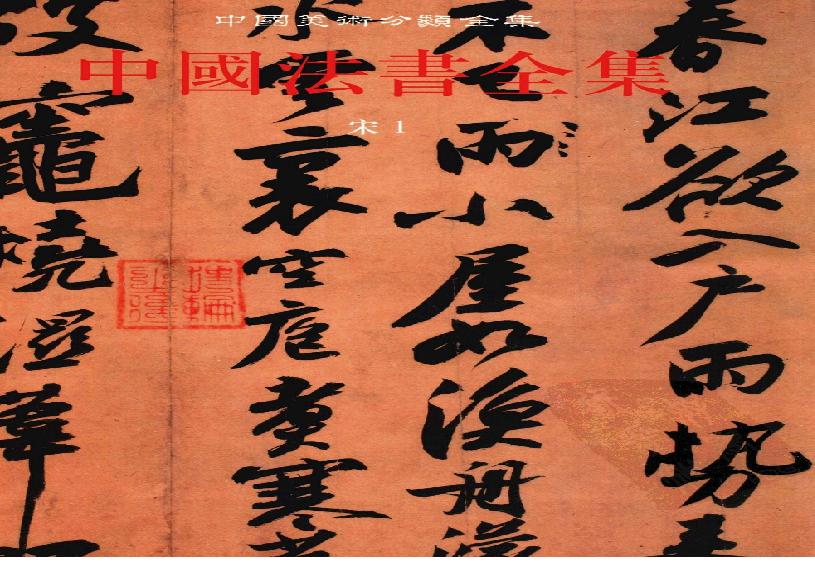 中國美術分類全集
中國法書全集
宋 1
春江欲入戶雨勢
不已雨小屋如漁舟濛
水雲裏空庖煮寒
竈燒濕葦